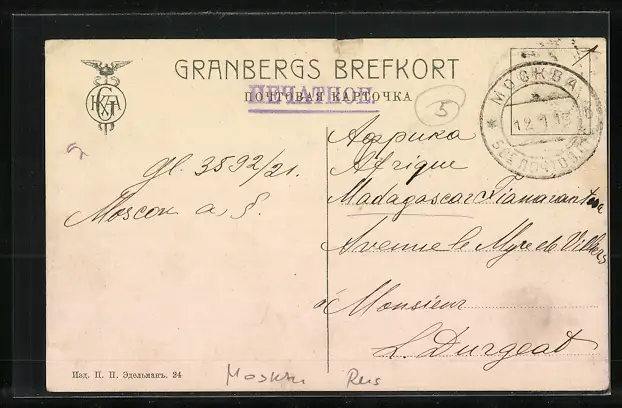 GRANBERGS BREFKORT
ПОЧТОВАЯ КАРТОЧКА
ПЕЧАТНОЕ
5
МОСКВА
gl. 3592/21.
Moscou a. S.
Африка
Afrique
Madagascar Fianarantsoa
Avenue le Myre de Villers
à Monsieur
L. Durgeat
Изд. П. П. Эдельманъ. 24
Rus